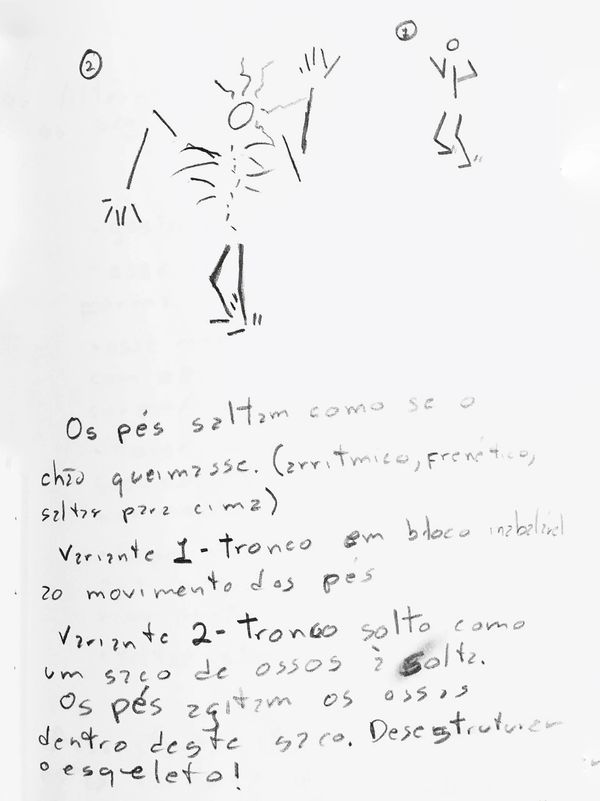 2
1
Os pés saltam como se o
chão queimasse. (arritmico, frenético,
saltar para cima)
Variante 1 - Tronco em bloco inabalável
ao movimento dos pés
Variante 2 - Tronco solto como
um saco de ossos à solta.
Os pés agitam os ossos
dentro deste saco. Desestruturam
o esqueleto!